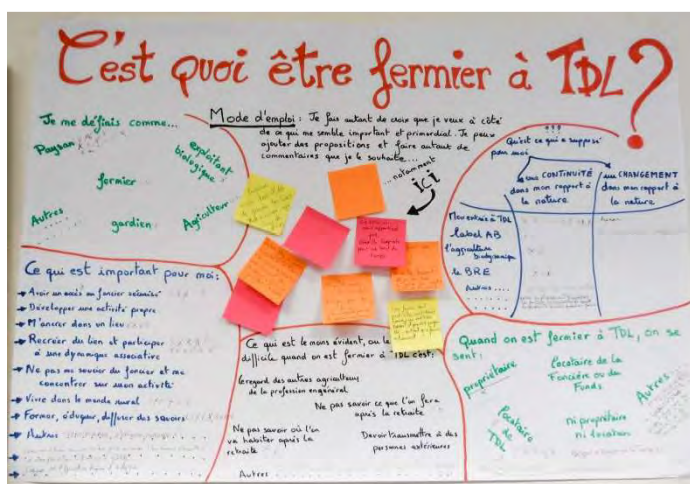 C'est quoi être fermier à TDL?
Je me définis comme...
Paysan
exploitant
biologique
fermier
Autres
gardien
Agriculteur
Mode d'emploi : Je fais autant de croix que je veux à côté
de ce qui me semble important et primordial. Je peux
ajouter des propositions et faire autant de
commentaires que je le souhaite...
...notamment
ICI
!!!
Qu'est ce qui a supposé
pour moi
une CONTINUITÉ
dans mon rapport à
la nature
un CHANGEMENT
dans mon rapport à
la nature.
Mon entrée à TDL
label AB
l'agriculture
biodynamique
le BRE
Autres
Ce qui est important pour moi:
Avoir un accès au foncier sécurisé
Développer une activité propre
M'ancrer dans un lieu
Recréer du lien et participer
à une dynamique associative
Ne pas me soucier du foncier et me
concentrer sur mon activité
Vivre dans le monde rural
Former, éduquer, diffuser des savoirs
Autres
Ce qui est le moins évident, ou le
difficile quand on est fermier à TDL c'est:
Le regard des autres agriculteurs
de la profession en général
Ne pas savoir ce que l'on fera
après la retraite
Ne pas savoir où l'on
va habiter après la
retraite
Devoir transmettre à des
personnes extérieures
Autres
Quand on est fermier à TDL, on se
sent:
propriétaire
Locataire de la
Foncière ou du
Fonds
Autres
Locataire
de
TDL
ni propriétaire
ni locataire